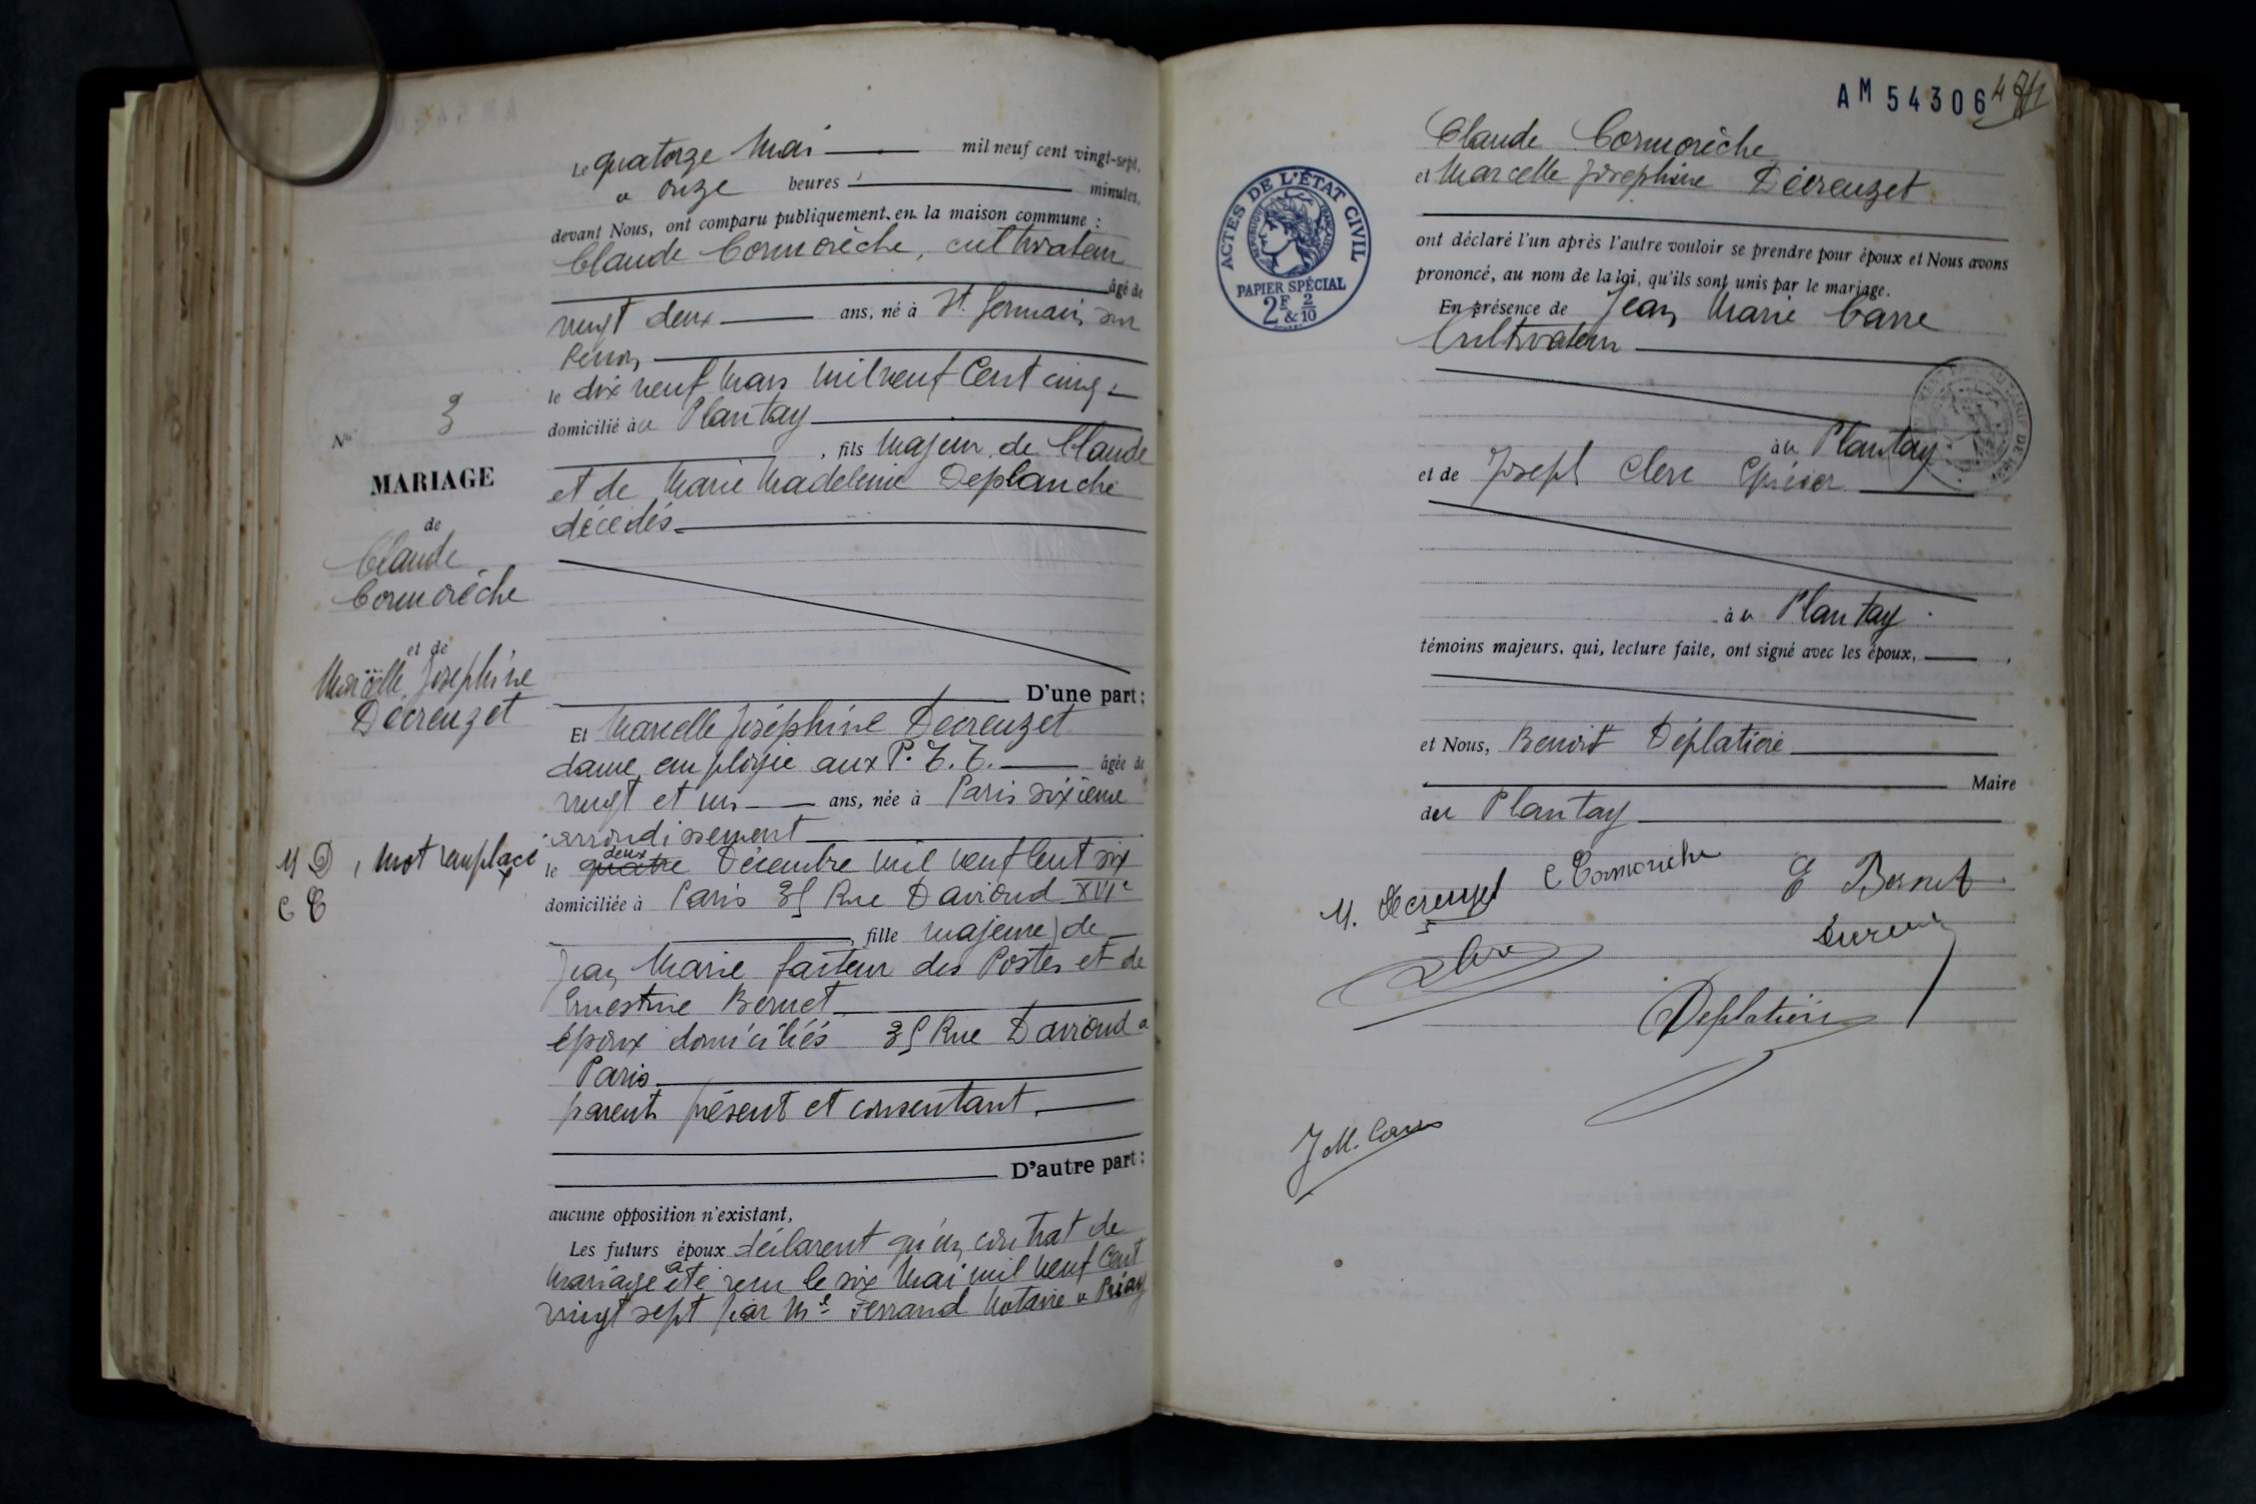 Le quatorze Mai mil neuf cent vingt-sept,
a onze heures minutes,
devant Nous, ont comparu publiquement en la maison commune :
Claude Cormorèche, cultivateur
âgé de
vingt deux ans, né à St. Germain sur
Renon
le dix neuf Mars mil neuf Cent cinq
domicilié à u Plantay
, fils Majeur de Claude
et de Marie Madeleine Deplanche
décédés
No 3
MARIAGE
de
Claude
Cormorèche
et de
Marcelle Joséphine
Décreuzet
D'une part :
Et Marcelle Joséphine Decreuzet
dame employée aux P.T.T. âgée de
vingt et un ans, née à Paris sixième
arrondissement
deux
le quatre Décembre mil neuf Cent six
domiciliée à Paris 35 Rue Davioud XVIe
, fille majeure de
Jean Marie facteur des Postes et de
Ernestine Bernet
époux domiciliés 35 Rue Davioud a
Paris
parents présent et consentant.
M D 1 mot remplacé
C C
D'autre part :
aucune opposition n'existant,
Les futurs époux déclarent qu'un contrat de
mariage a été reçu le six Mai mil neuf Cent
vingt sept par Me Ferrand Notaire a Priay
AM 54306
Claude Cormorèche
et Marcelle Joséphine Décreuzet
ont déclaré l'un après l'autre vouloir se prendre pour époux et Nous avons
prononcé, au nom de la loi, qu'ils sont unis par le mariage.
En présence de Jean Marie Carre
Cultivateur
au Plantay
et de Joseph Clerc Épicier
au Plantay
témoins majeurs, qui, lecture faite, ont signé avec les époux,
et Nous, Benoit Déplatière
Maire
du Plantay
M. Decreuzet C Cormorèche E Bernet
Clerc
Deplatière
J M. Carre
ACTES DE L'ÉTAT CIVIL
RÉPUBLIQUE FRANÇAISE
PAPIER SPÉCIAL
2F & 2/10